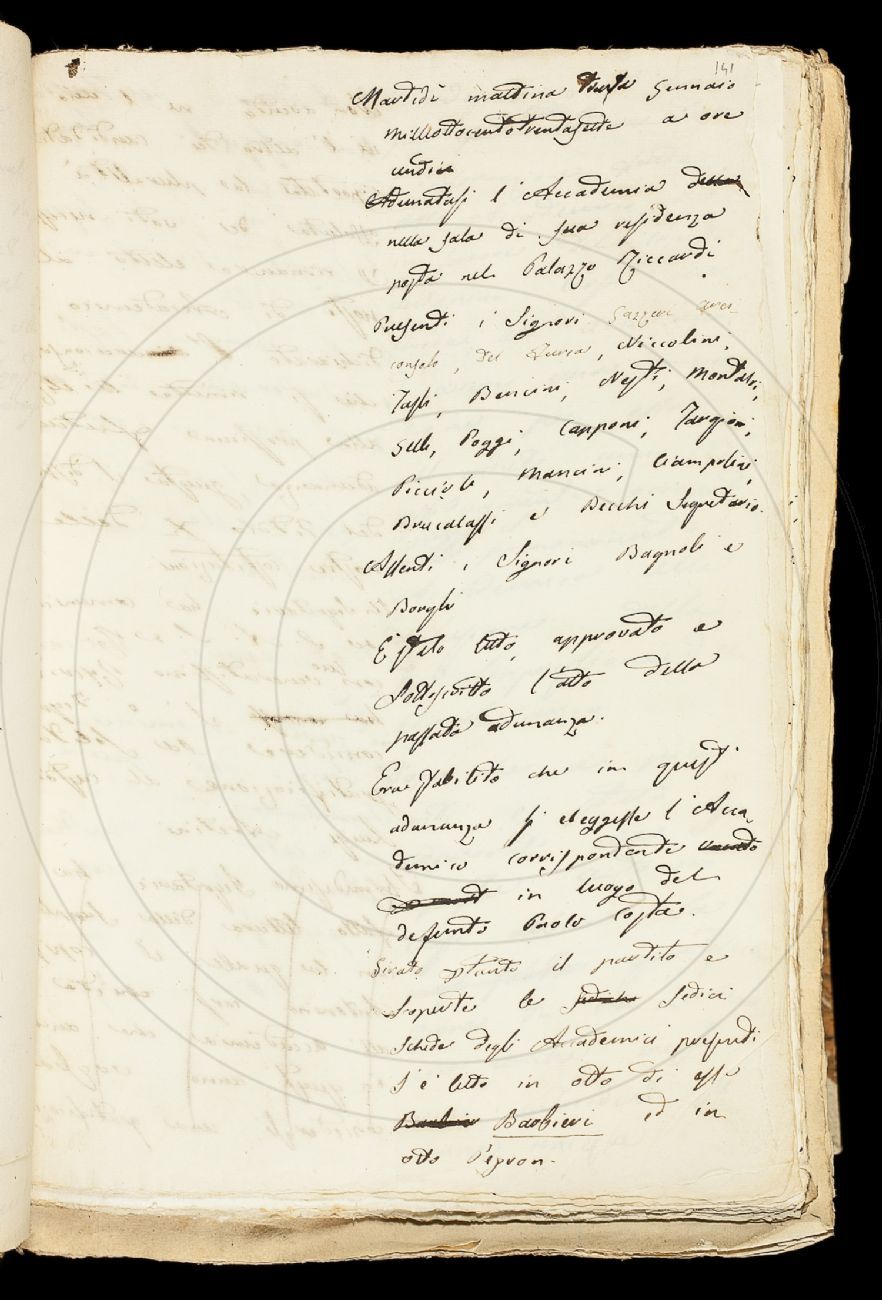 141
Martedì mattina Gennaio
milleottocentotrentasette a ore
undici
Adunatasi l'Accademia della
nella sala di sua residenza
posta nel Palazzo Riccardi
Presenti i Signori Gazzeri Arci-
consolo, Del Furia, Niccolini,
Becchi, Nesti, Montalvi,
Poggi, Capponi, Targioni,
Mancini, Ciampolini,
Brucalassi e Becchi Segretario.
Assenti i Signori Bagnoli e
Borghi
È stato letto, approvato e
sottoscritto l'atto della
passata adunanza.
Era stabilito che in quest'
adunanza si eleggesse l'Acca-
demico corrispondente
in luogo del
defunto Paolo Costa.
Girato pertanto il partito e
scoperte le sedici
schede degli Accademici presenti
s'è letto in otto di esse
Barbieri Barbieri ed in
otto Pezzon.